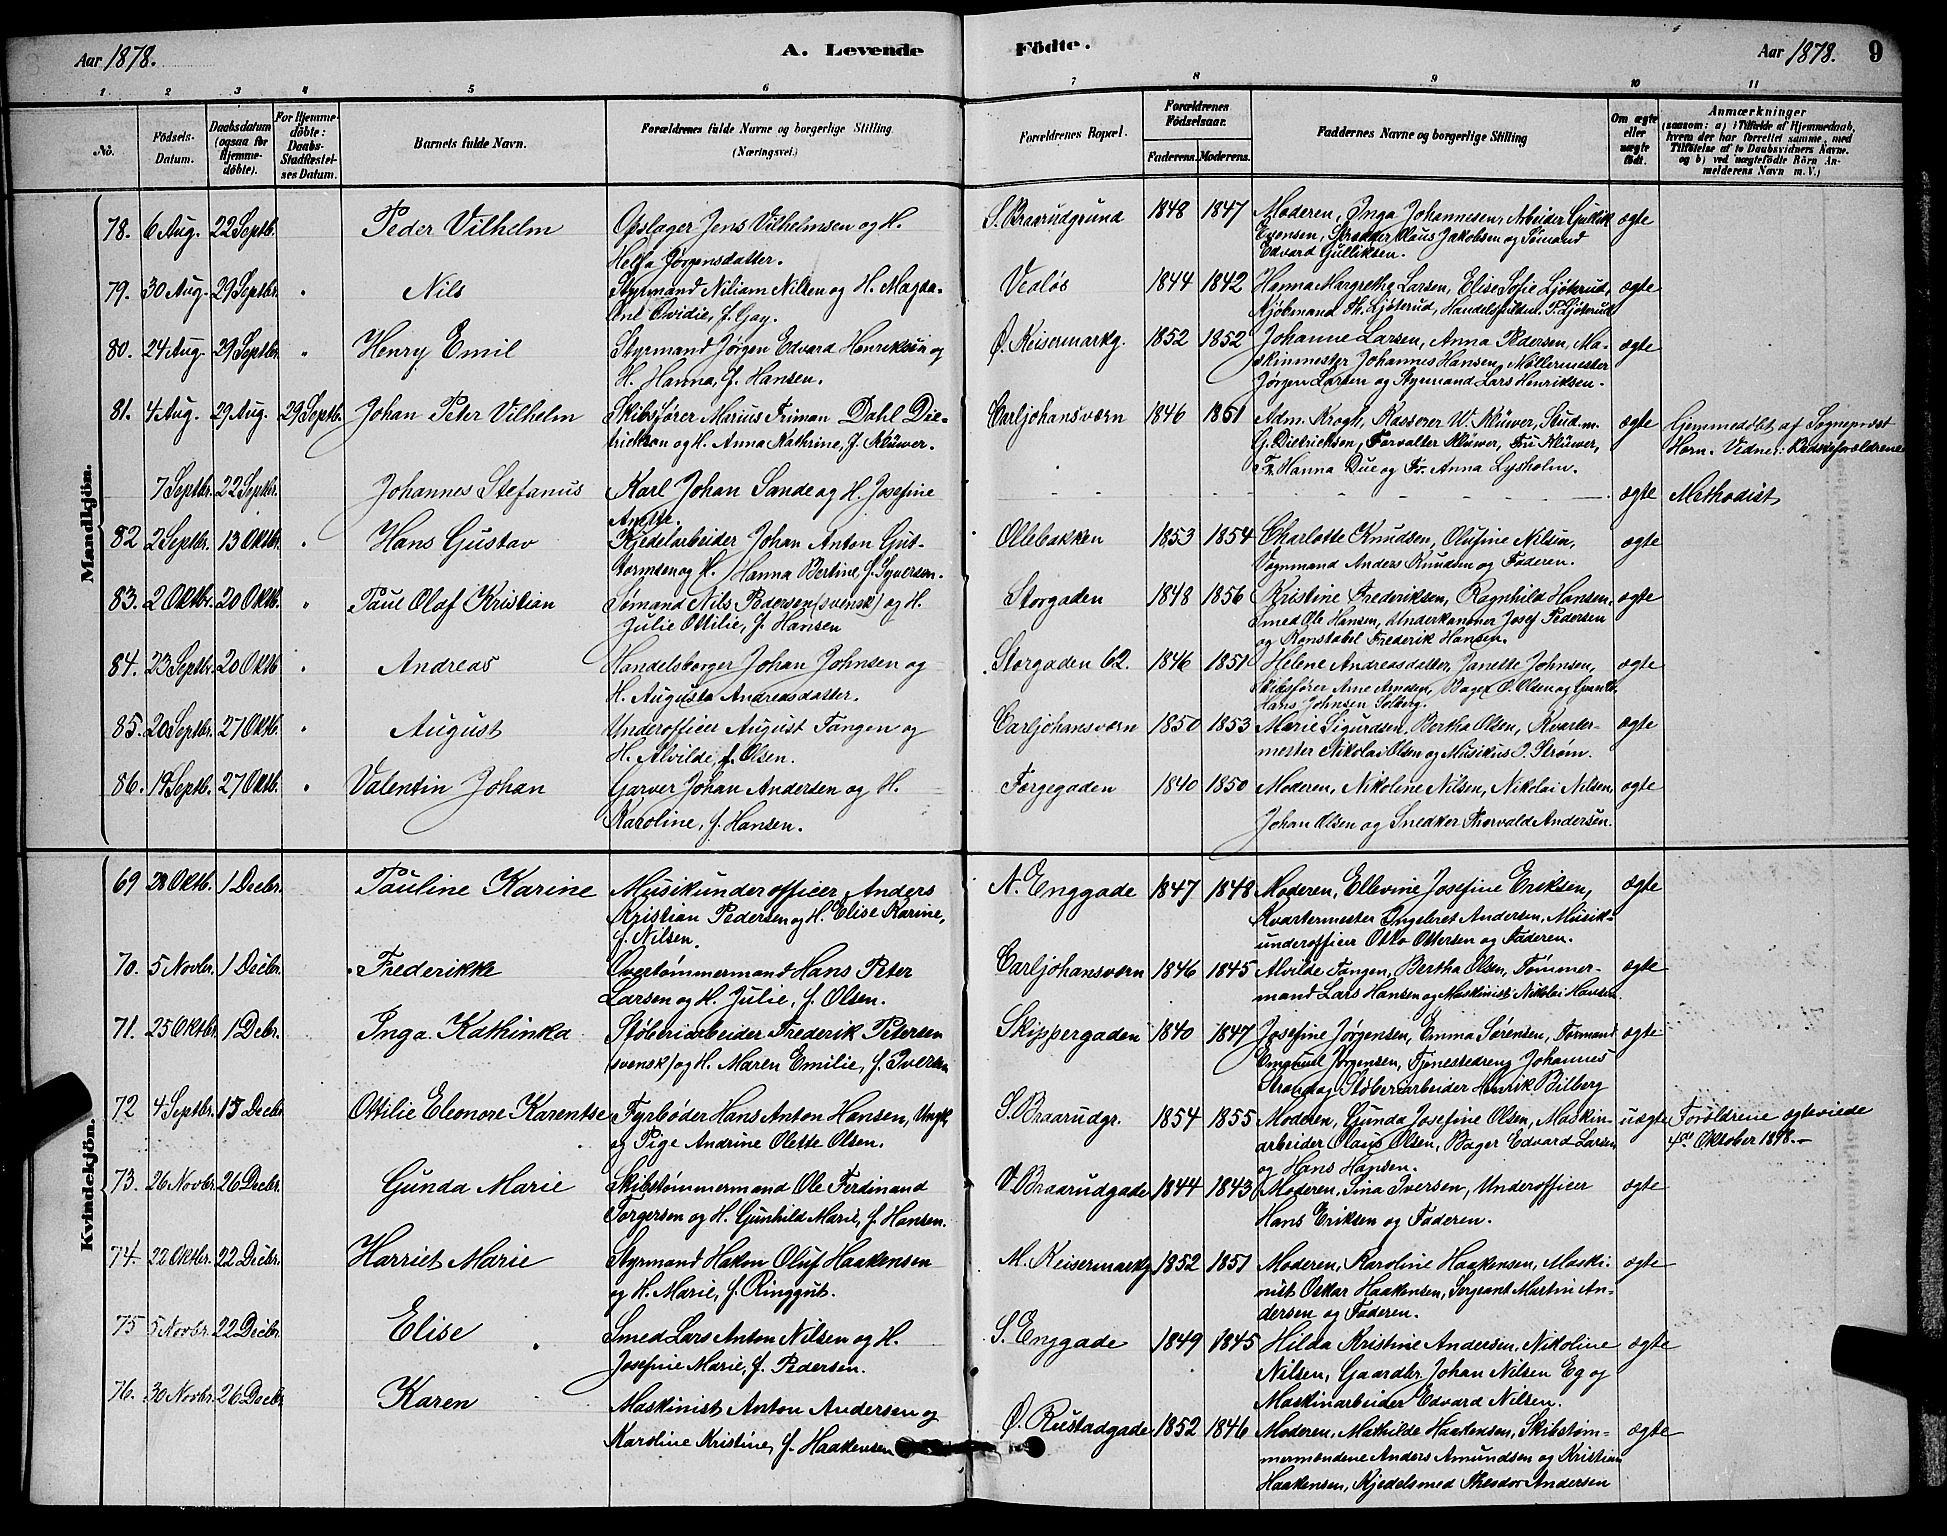 Aar 1878.
A. Levende Födte.
Aar 1878. 9
1 2 3 4 5 6 7 8 9 10 11
No.
Födsels-Datum.
Daabsdatum (ogsaa for Hjemme-døbte).
For Hjemme-döbte: Daabs-Stadfæstel-ses Datum.
Barnets fulde Navn.
Forældrenes fulde Navne og borgerlige Stilling. (Næringsvei.)
Forældrenes Bopæl.
Forældrenes Födselsaar.
Faderens. Moderens.
Faddernes Navne og borgerlige Stilling
Om ægte eller uægte födt.
Anmærkninger
(saasom: a) i Tilfælde af Hjemmedaab,
hvem der har forrettet samme, med
Tilføielse af to Daabsvidners Navne.
og b) ved uægtefödte Börn An-
melderens Navn m. V.)
Mandkjön.
78. 6 Aug. 22 Septb. Peder Vilhelm Opslager Jens Vilhelmsen og H. S. Braarudgrund 1848 1847 Moderen, Inga Johannesen, Arbeider Gullik ægte
Helga Jørgensdatter. Evensen, Skrædder Claus Jakobsen og Sømand
Edvard Gulliksen.
79. 30 Aug. 29 Septbr. " Nils Styrmand Niliam Nilsen og H. Magda- Vealøs 1844 1842 Hanna Margrethe Larsen, Elise Sofie Ljøterud, ægte
lene Ovidie, f. Gay. Kjøbmand Th. Ljøterud, Handelsfuldm. P. Ljøterud
80. 24 Aug. 29 Septbr. " Henry Emil Styrmand Jørgen Edvard Henriksen og Ø. Keisermarkg. 1852 1852 Johanne Larsen, Anna Pedersen, Ma- ægte
H. Hanna, f. Hansen. skinmester Johannes Hansen, Møllermester
Jørgen Larsen og Styrmand Lars Henriksen.
81. 4 Aug. 29 Aug. 29 Septb. Johan Peter Vilhelm Skibsfører Marius Friman Dahl Die- Carljohansværn 1846 1851 Adm. Krogh, Kasserer W. Klüwer, Stud. m. ægte Hjemmedøbt af Sogneprest
trichson og H. Anna Kathrine, f. Klüwer. G. Dietrichson, Forvalter Klüwer, Fru Klüwer, Horn. Vidner: Bedsteforældrene
Fr. Hanna Due og Fr. Anna Lysholm.
7 Septbr. 22 Septbr. Johannes Stefanus Karl Johan Sande og H. Josefine ægte Methodist
Anette.
82 2 Septbr. 13 Oktbr. " Hans Gustav Kjedelarbeider Johan Anton Gut- Ollebakken 1853 1854 Charlotte Knudsen, Olufine Nilsen, ægte
tormsen og H. Hanna Bertine, f. Syversen. Vognmand Anders Knudsen og Faderen.
83. 2 Oktbr. 20 Oktb. " Paul Olaf Kristian Sømand Nils Pedersen (svensk) og H. Storgaden 1848 1856 Kristine Frederiksen, Ragnhild Hansen, ægte
Julie Ottilie, f. Hansen Smed Ole Hansen, Underkanoner Josef Pedersen
og Konstabel Frederik Hansen.
84. 23 Septbr. 20 Oktb " Andreas Handelsborger Johan Johnsen og Storgaden 62. 1846 1851 Helene Andreasdatter, Janette Johnsen, ægte
H. Augusta Andreasdatter. Skibsfører Arne Arnesen, Bager O. Olsen og
Hans Johnsen Solberg.
85. 20 Septbr. 27 Oktb. " August Underofficer August Tangen og Carljohansværn 1850 1853 Marie Sigurdsen, Bertha Olsen, Kvarter- ægte
H. Alvilde, f. Olsen. mester Nikolai Olsen og Musikus O. Strøm.
86. 19 Septb. 27 Oktb. " Valentin Johan Garver Johan Andersen og H. Torgegaden 1840 1850 Moderen, Nikoline Nilsen, Nikolai Nilsen, ægte
Karoline, f. Hansen. Johan Olsen og Snedker Thorvald Andersen.
Kvindekjön.
69 28 Oktb. 1 Decbr. Pauline Karine Musikunderofficer Anders N. Enggade 1847 1848 Moderen, Ellevine Josefine Eriksen, ægte
Kristian Pedersen og H. Elise Karine, Kvartermester Ingebret Andersen, Musik-
f. Nilsen. underofficer Otto Ottersen og Faderen.
70. 5 Novbr. 1 Decbr. Frederikke Overtømmermand Hans Peter Carljohansværn 1846 1845 Alvilde Tangen, Bertha Olsen, Tømmer- ægte
Larsen og H. Julie, f. Olsen. mand Lars Hansen og Maskinist Nikolai Hansen
71. 25 Oktbr. 1 Debr. Inga Kathinka Støberiarbeider Frederik Petersen Skippergaden 1840 1847 Josefine Jørgensen, Emma Sørensen, Formand ægte
(svensk) og H. Maren Emilie, f. Iversen Emanuel Jørgensen, Tjenestedreng Johannes
Strand og Støberiarbeider Henrik Bilberg
72 4 Septbr. 15 Decbr. Ottilie Eleonore Karentse Fyrbøder Hans Anton Hansen, Ungk. S. Braarudgr. 1854 1855 Moderen, Gunda Josefine Olsen, Maskin- uægte Forældrene ægteviede
og Pige Andrine Olette Olsen. arbeider Olaus Olsen, Bager Edvard Larsen 4de Oktober 1898.-
og Hans Hansen.
73. 26 Novbr. 26 Decbr. Gunda Marie Skibstømmermand Ole Ferdinand V. Braarudgade 1844 1843 Moderen, Sina Iversen, Underofficer ægte
Torgersen og H. Gunhild Marie, f. Hansen. Hans Eriksen og Faderen.
74. 22 Oktbr. 22 Decbr. Harriet Marie Styrmand Hakon Oluf Haakensen M. Keisermarkg 1852 1851 Moderen, Karoline Haakensen, Maski- ægte
og H. Marie, f. Ringgut. nist Oskar Haakensen, Sergeant Martin An-
dersen og Faderen.
75 5 Novbr. 22 Decbr. Elise Smed Lars Anton Nilsen og H. S. Enggade 1849 1845 Hilda Kristine Andersen, Nikoline ægte
Josefine Marie, f. Pedersen. Nilsen, Gaardbr. Johan Nilsen Eg og
Maskinarbeider Edvard Nilsen.
76. 30 Novbr. 26 Decbr. Karen Maskinist Anton Andersen og Ø. Rustadgade 1852 1846 Moderen, Mathilde Haakensen, Skibstøm- ægte
Karoline Kristine, f. Haakensen mermændene Anders Amundsen og Kristian
Haakensen, Kjedelsmed Theodor Andersen